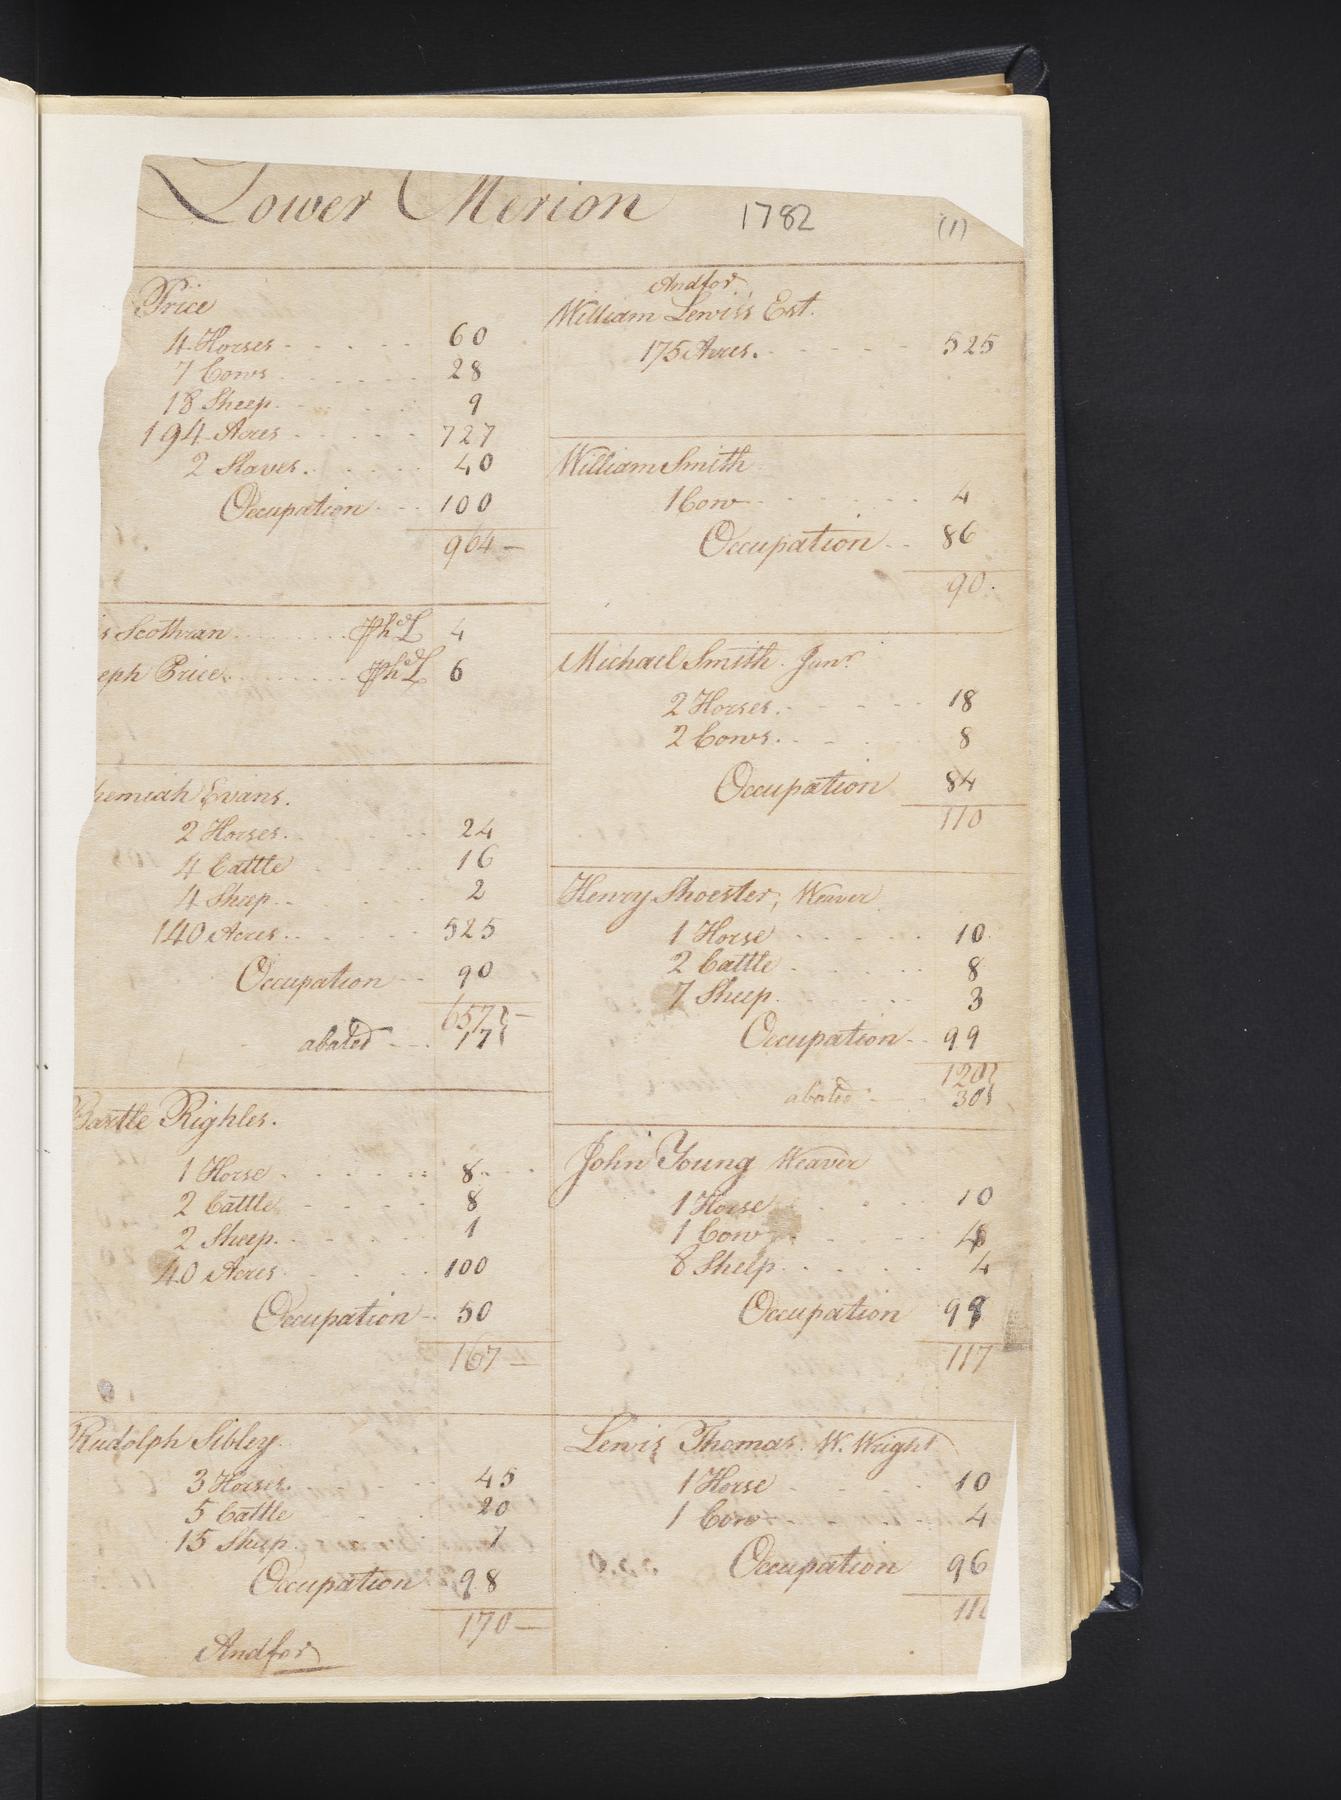 Lower Merion 1782 (1)
Price
4 Horses 60
7 Cows 28
18 Sheep 9
194 Acres 727
2 Slaves 40
Occupation 100
964
s Scothran PhdL 4
eph Price PhdL 6
hemiah Evans.
2 Horses 24
4 Cattle 16
4 Sheep 2
140 Acres 525
Occupation 90
657
abated 17
Bartle Righler.
1 Horse 8
2 Cattle 8
2 Sheep 1
40 Acres 100
Occupation 50
167
Rudolph Sibley
3 Horses 45
5 Cattle 20
15 Sheep 7
Occupation 98
170
Andfor
Andfor
William Lewis's Est.
175 Acres 525
William Smith
1 Cow 4
Occupation 86
90
Michael Smith Junr.
2 Horses 18
2 Cows 8
Occupation 84
110
Henry Shoester, Weaver
1 Horse 10
2 Cattle 8
7 Sheep 3
Occupation 99
120
abated 30
John Young Weaver
1 Horse 10
1 Cow 4
8 Sheep 4
Occupation
117
Lewis Thomas W. Wright
1 Horse 10
1 Cow 4
Occupation 96